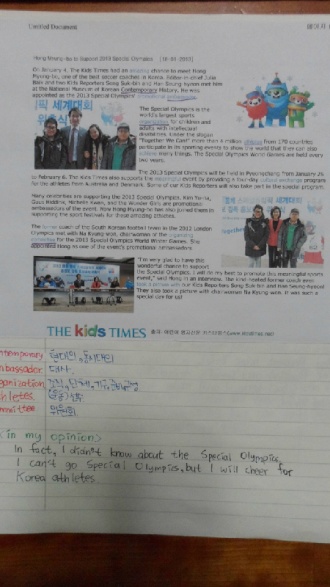 Untitled Document
Hong Myung-bo to Support 2013 Special Olympics
On January 4, The Kids Times had an amazing chance to meet Hong
Myung-bo, one of the best soccer coaches in Korea. Editor-in-chief Julie
Han and two Kids Reporters Sung Suk-bin and Han Seung-hyeon met him
at the National Museum of Korean Contemporary History. He was
appointed as the 2013 Special Olympics
The Special Olympics is the
world's largest sports
organization for children and
adults with intellectual
disabilities. Under the slogan
"Together We Can!" more than 3 million from 170 countries
participate in its sporting events to show the world that they can also
achieve many things. The Special Olympics World Games are held every
two years.
The 2013 Special Olympics will be held in Pyeongchang from January 29
to February 6. The Kids Times also supports the event by providing a four-day culture exchange program
for the athletes from Austria and Denmark. Some of our Kids Reporters will also take part in the special program.
Many celebrities are supporting the 2013 Special Olympics. Kim Yu-na,
Guus Hiddink, Michelle Kwan, and the Wonder Girls are promotional
ambassadors of the event. Now Hong Myung-bo has also joined them in
supporting the sport festivals for these amazing athletes.
The former coach of the South Korean football team in the 2012 London
Olympics met with Na Kyung-won, chairwoman of the organizing
committee for the 2013 Special Olympics World Winter Games. She
appointed Hong as one of the event's promotional ambassadors.
"I'm very glad to have this
wonderful chance to support
the Special Olympics. I will do my best to promote this meaningful sports
event," said Hong in an interview. The kind hearted soccer coach even
took a picture with our Kids Reporters Sung Suk-bin and Han Seung-hyeon!
They also took a picture with chairwoman Na Kyung-won. It was such a
special day for us!
THE kids TIMES
대사
위원회
<in my opinion>
In fact, I didn't know about the Special Olympics,
I can't go Special Olympics, but I will cheer for
Korea athletes